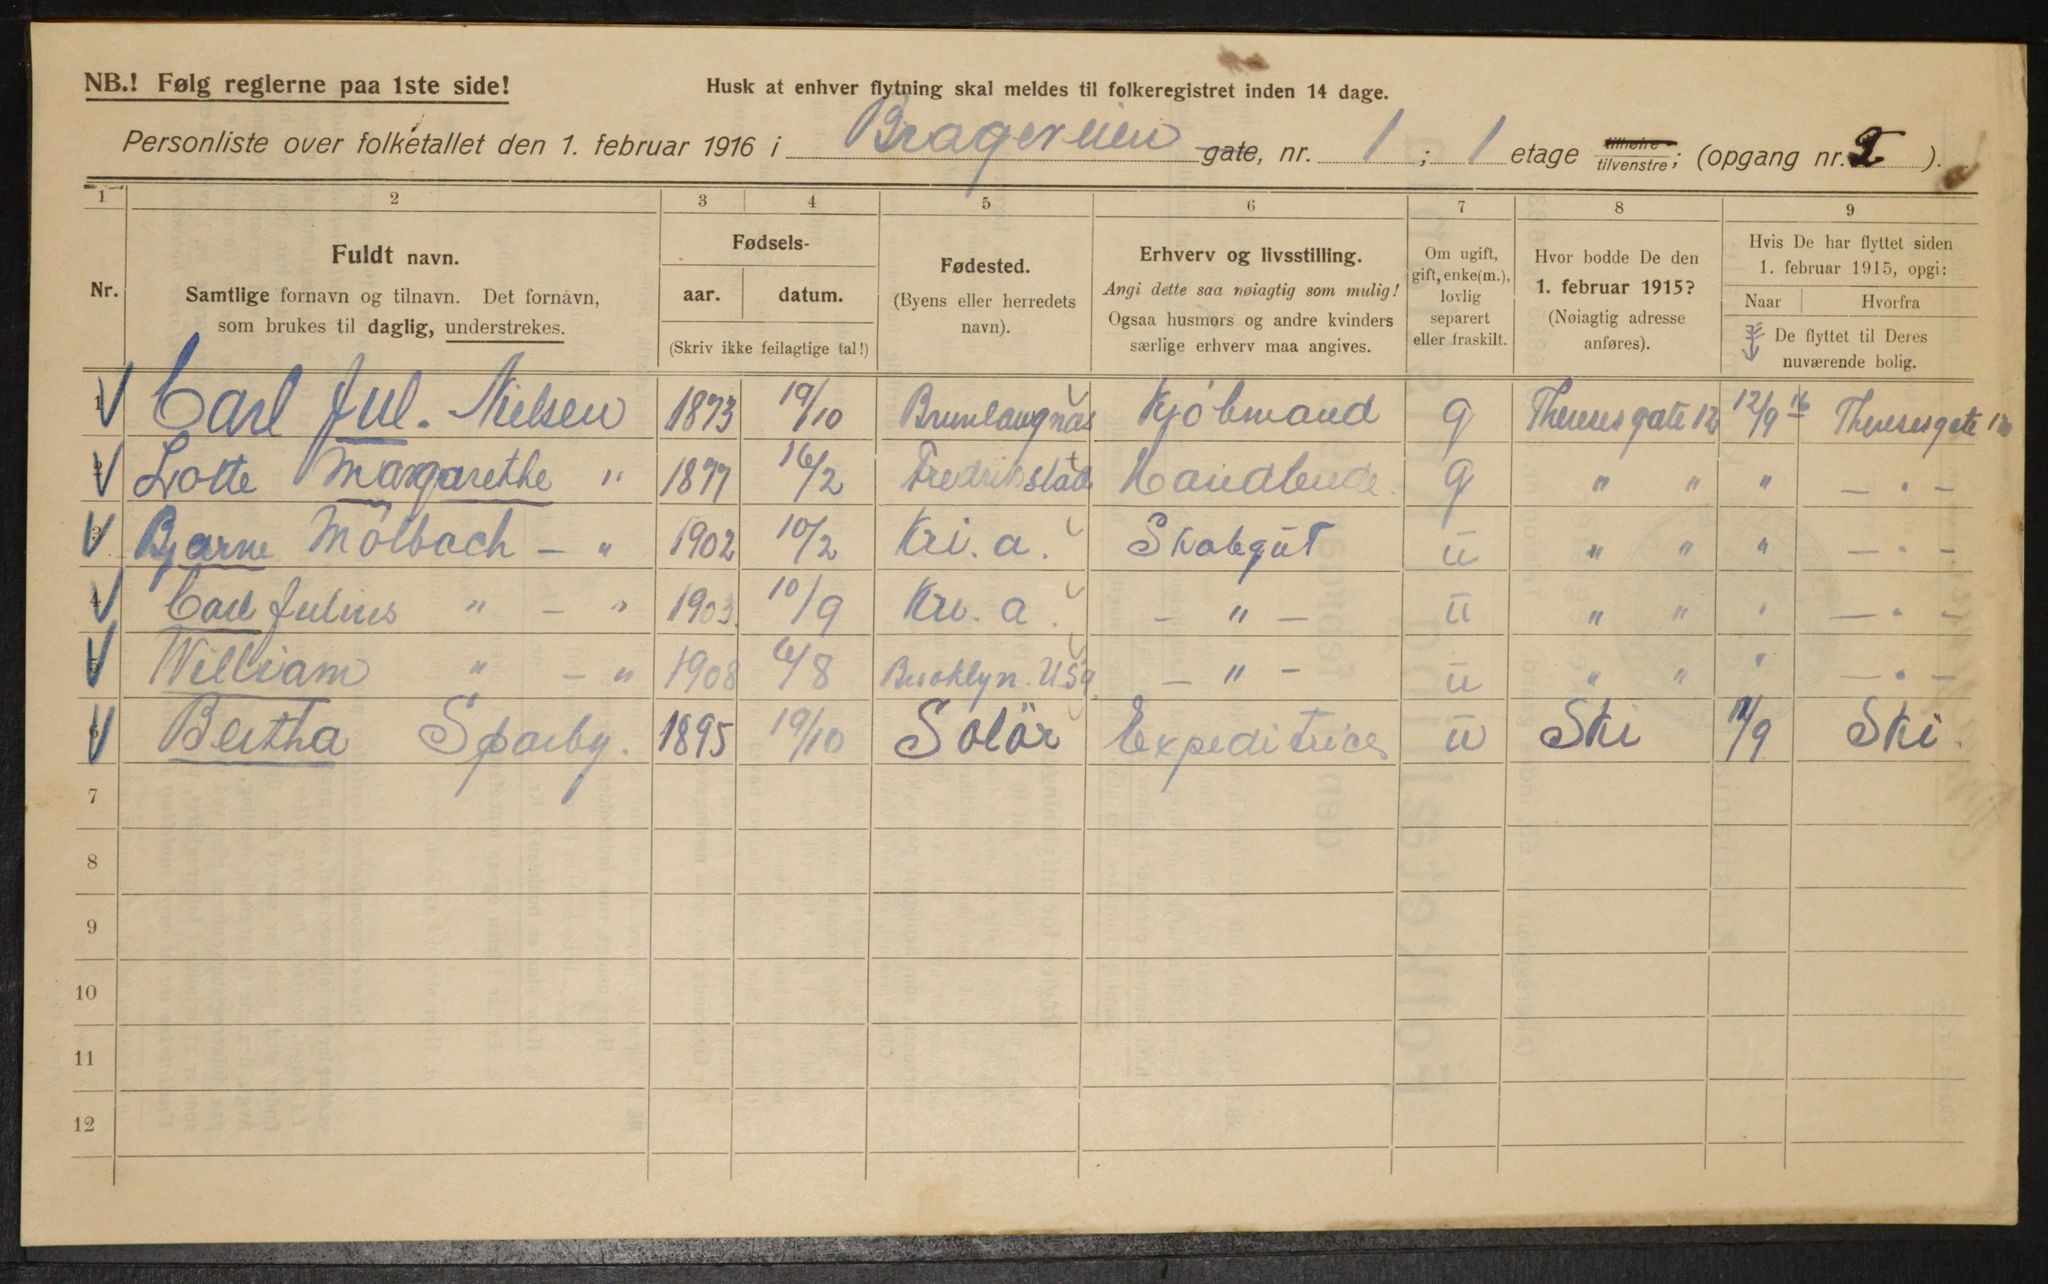 NB.! Følg reglerne paa 1ste side!
Husk at enhver flytning skal meldes til folkeregistret inden 14 dage.
Personliste over folketallet den 1. februar 1916 i Brageveien gate, nr. 1 ; 1 etage tilhøire tilvenstre; (opgang nr. 2 ).
1 2 3 4 5 6 7 8 9
Nr.
Fuldt navn.
Samtlige fornavn og tilnavn. Det fornavn,
som brukes til daglig, understrekes.
Fødsels-
aar. datum.
(Skriv ikke feilagtige tal!)
Fødested.
(Byens eller herredets
navn).
Erhverv og livsstilling.
Angi dette saa nøiagtig som mulig!
Ogsaa husmors og andre kvinders
særlige erhverv maa angives.
Om ugift,
gift, enke(m.),
lovlig
separert
eller fraskilt.
Hvor bodde De den
1. februar 1915?
(Nøiagtig adresse
anføres).
Hvis De har flyttet siden
1. februar 1915, opgi:
Naar Hvorfra
De flyttet til Deres
nuværende bolig.
1 Carl Jul. Nielsen 1873 19/10 Brunlangnæs Kjøbmand g Theresesgate 12 12/9 Theresesgate 12
2 Lotte Margarethe " 1877 16/2 Fredrikstad g " " " — " —
3 Bjarne Mölbach — " 1902 10/2 Kri. a. Skolegut u " " " — " —
4 Carl Julius " — " 1903 10/9 Kri. a. — " — u " " " — " —
5 William " — " 1908 6/8 Brooklyn. USa. — " — u " " " — " —
6 Bertha Sparby. 1895 19/10 Solör Expeditrice u Ski /9 Ski.
7
8
9
10
11
12